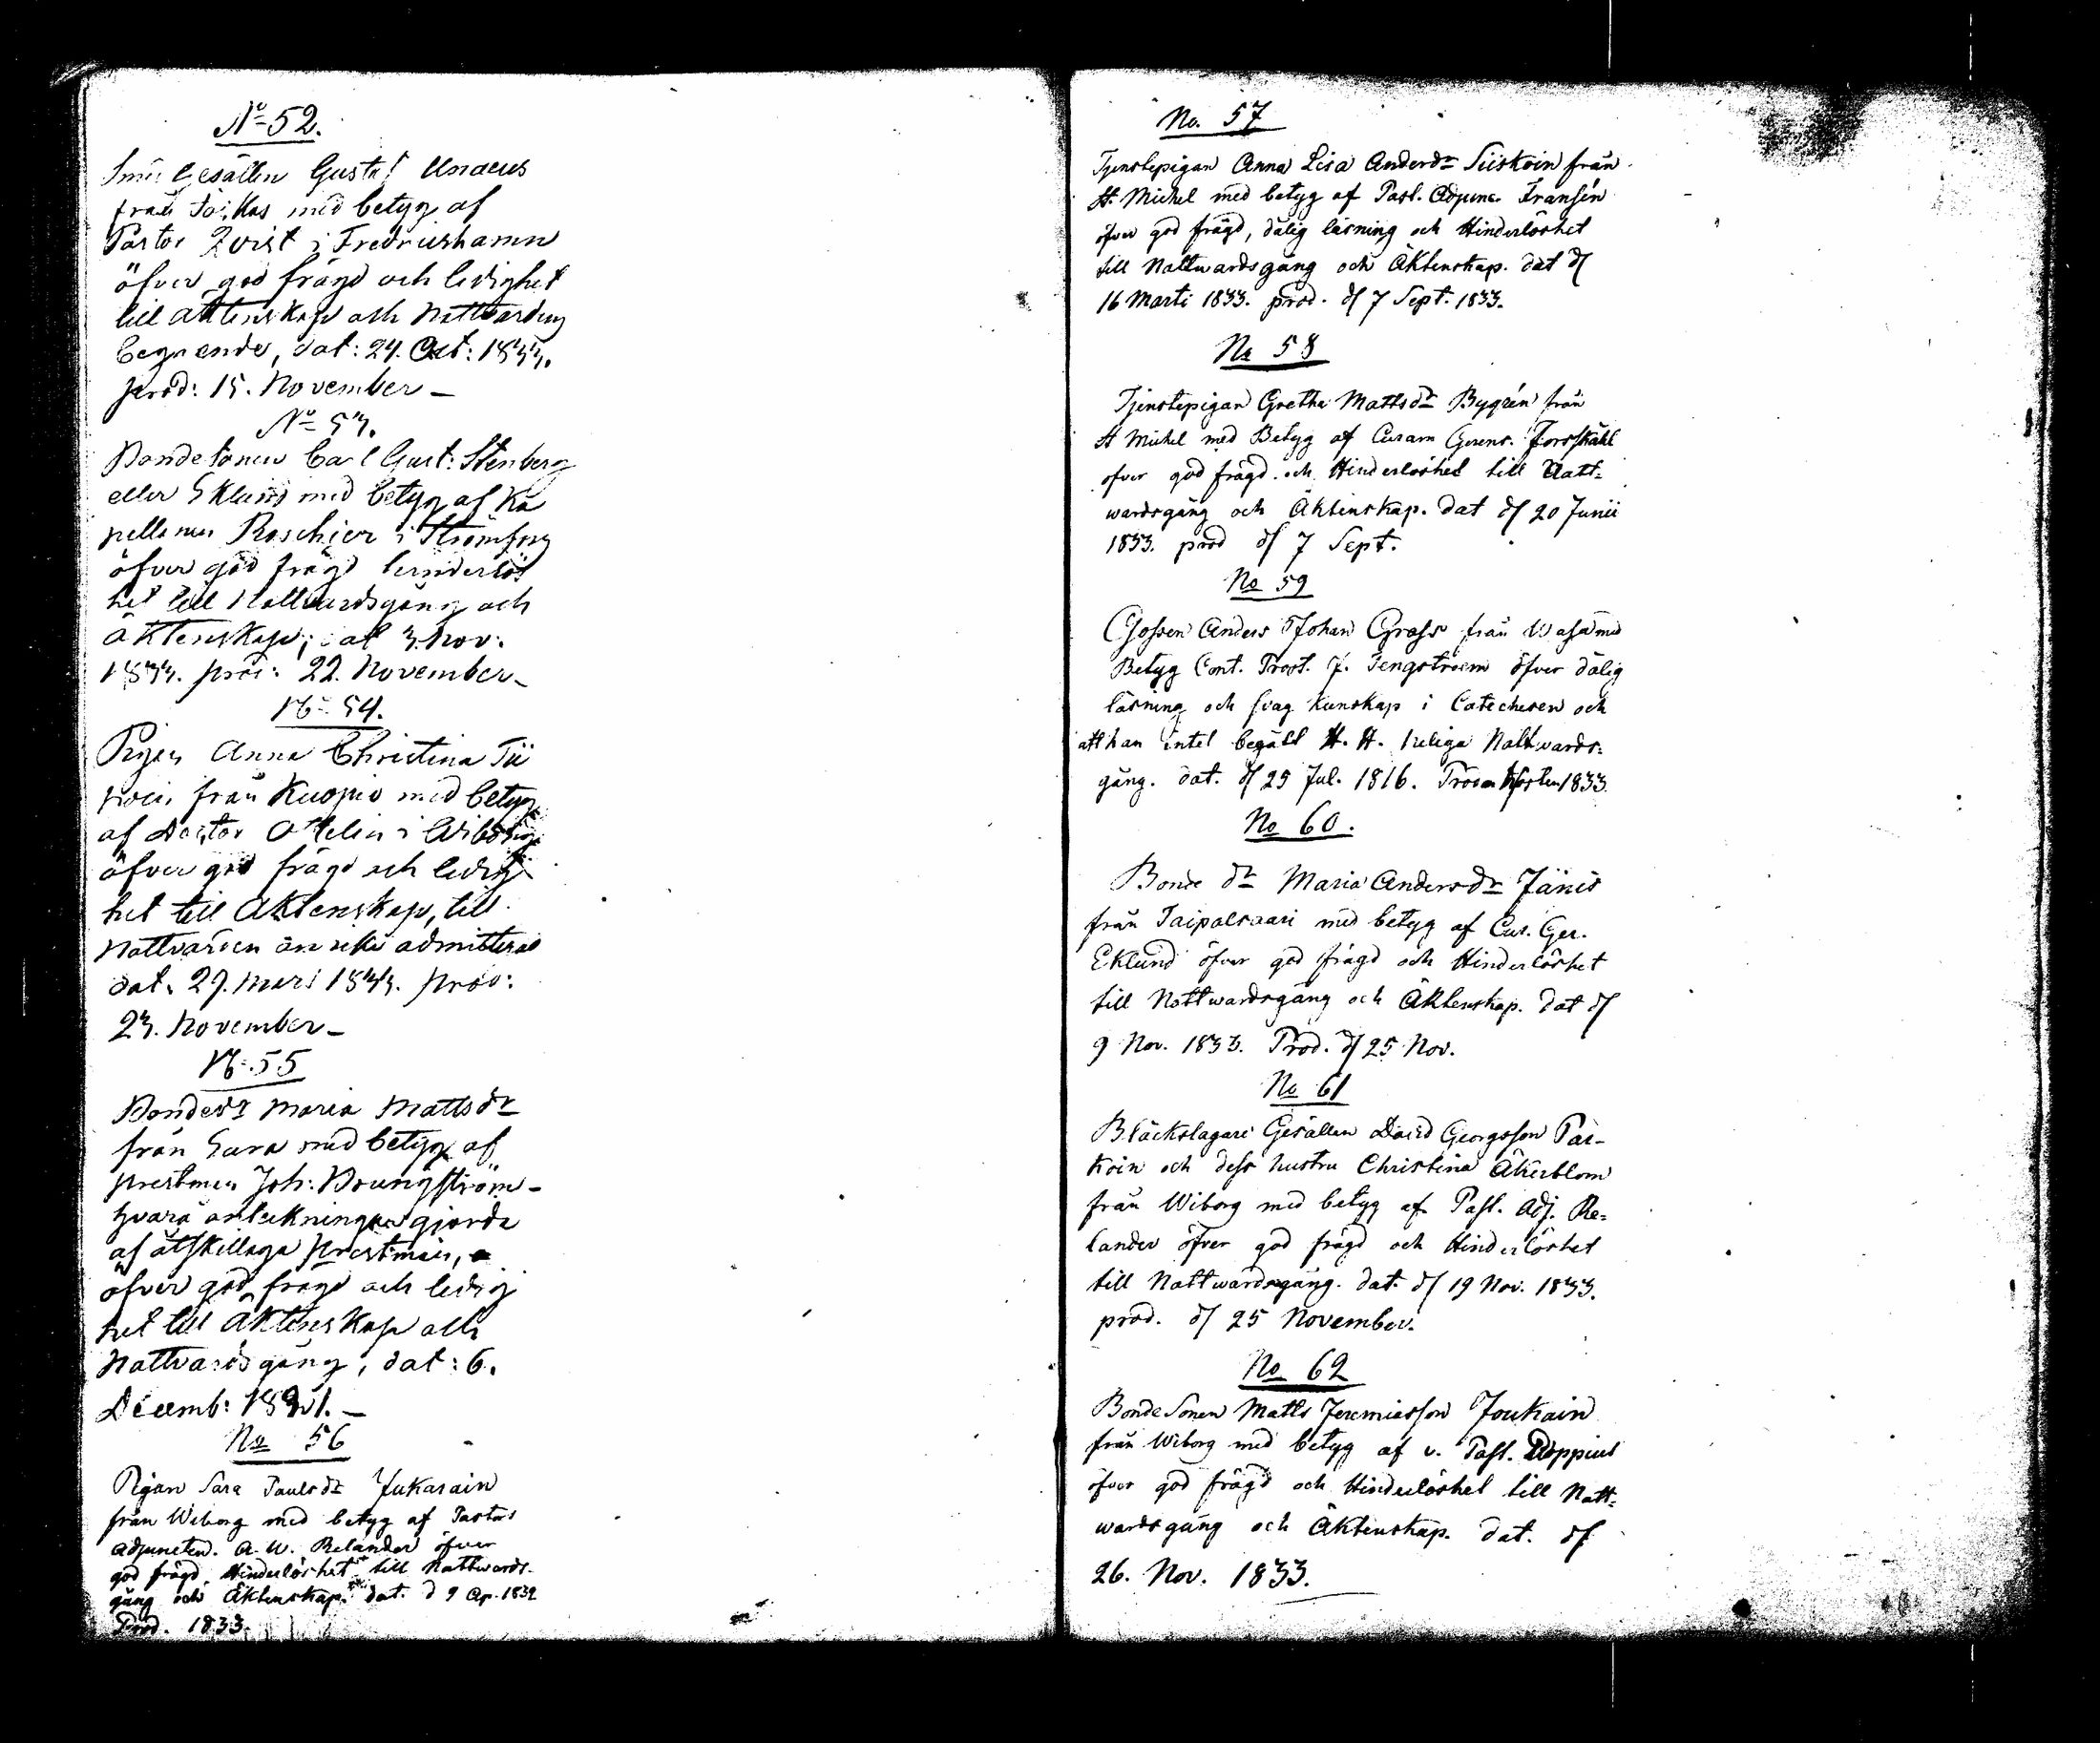 No 52.
Smi: Gesällen Gustaf Unaeus
från Töikas med betyg af
Pastor Qvist i Fredrikshamn
öfver god frägd och ledighet
till äktenskap och Nattvardens
begående, dat: 24. Oct: 1833.
prod: 15. November –
No 53.
Bondesonen Carl Gust: Stenberg
eller Eklund med betyg af Ka
pellanen Roschier i Strömfors
öfver god frägd hinderlös
het till Nattvardsgång och
äktenskap; dat 3. Nov:
1833. prod: 22. November –
No 54.
Pigan Anna Christina Tii
från Kuopio med betyg
af Doctor i Wiborg
öfver god frägd och ledig
het till Äktenskap, till
Nattvarden än icke admitterad
dat. 29. Mars 1833. prod:
23. November –
No 55
Bondedr Maria Mattsdr
från Sara med betyg af
prestmen Joh: Boungström –
hvara anteckningar gjorde
af åtskilliga prestmän,
öfver god frägd och ledig
het till Äktenskap och
Nattvardsgång, dat: 6.
Decemb: 1831. –
No 56
Pigan Sara Paulsdr Jukarain
från Wiborg med betyg af Pastors
adjuncten. A. W. Relander öfver
god frägd, Hinderlöshet till Nattwards-
gång och Äktenskap. dat. d 9 Ap. 1832
Prod. 1833.
No. 57
Tjenstepigan Anna Lisa Andersdr Siiskoin från
St. Michel med betyg af Past. Adjunc. Fransén
öfver god frägd, dålig läsning och Hinderlöshet
till Nattwardsgång och Äktenskap. dat d/
16 Marti 1833. prod. d/ 7 Sept. 1833.
No 58
Tjenstepigan Gretha Mattsdr Bygrén från
St Michel med Betyg af Curam Gerens. Forsskåhl
öfver god frägd och Hinderlöshet till Natt-
wardsgång och Äktenskap. dat d/ 20 Junii
1833. prod d/ 7 Sept.
No 59
Gossen Anders Johan Grass från Wasa med
Betyg Cont. Prost. J. Tengstroem öfver dålig
läsning och svag Kunskap i Catechesen och
att han intet begått H. H. heliga Nattwards-
gång. dat. d/ 25 Jul. 1816. Prod Hösten 1833.
No 60.
Bonde dr Maria Andersdr Jänis
från Taipalsaari med betyg af Cur. Ger.
Eklund öfver god frägd och Hinderlöshet
till Nattwardsgång och Äktenskap. dat d/
9 Nov. 1833. Prod. d/ 25 Nov.
No 61
Bläckslagare Gesällen David Georgsson Par-
koin och dess hustru Christina Åkerblom
från Wiborg med betyg af Past. Adj. Re-
lander öfver god frägd och Hinderlöshet
till Nattwardsgång. dat. d/ 19 Nov. 1833.
prod. d/ 25 November.
No 62
Bonde Sonen Matts Jeremiasson Joukain
från Wiborg med betyg af v. Past. Poppius
öfver god frägd och Hinderlöshet till Natt-
wardsgång och Äktenskap. dat. d/
26. Nov. 1833.